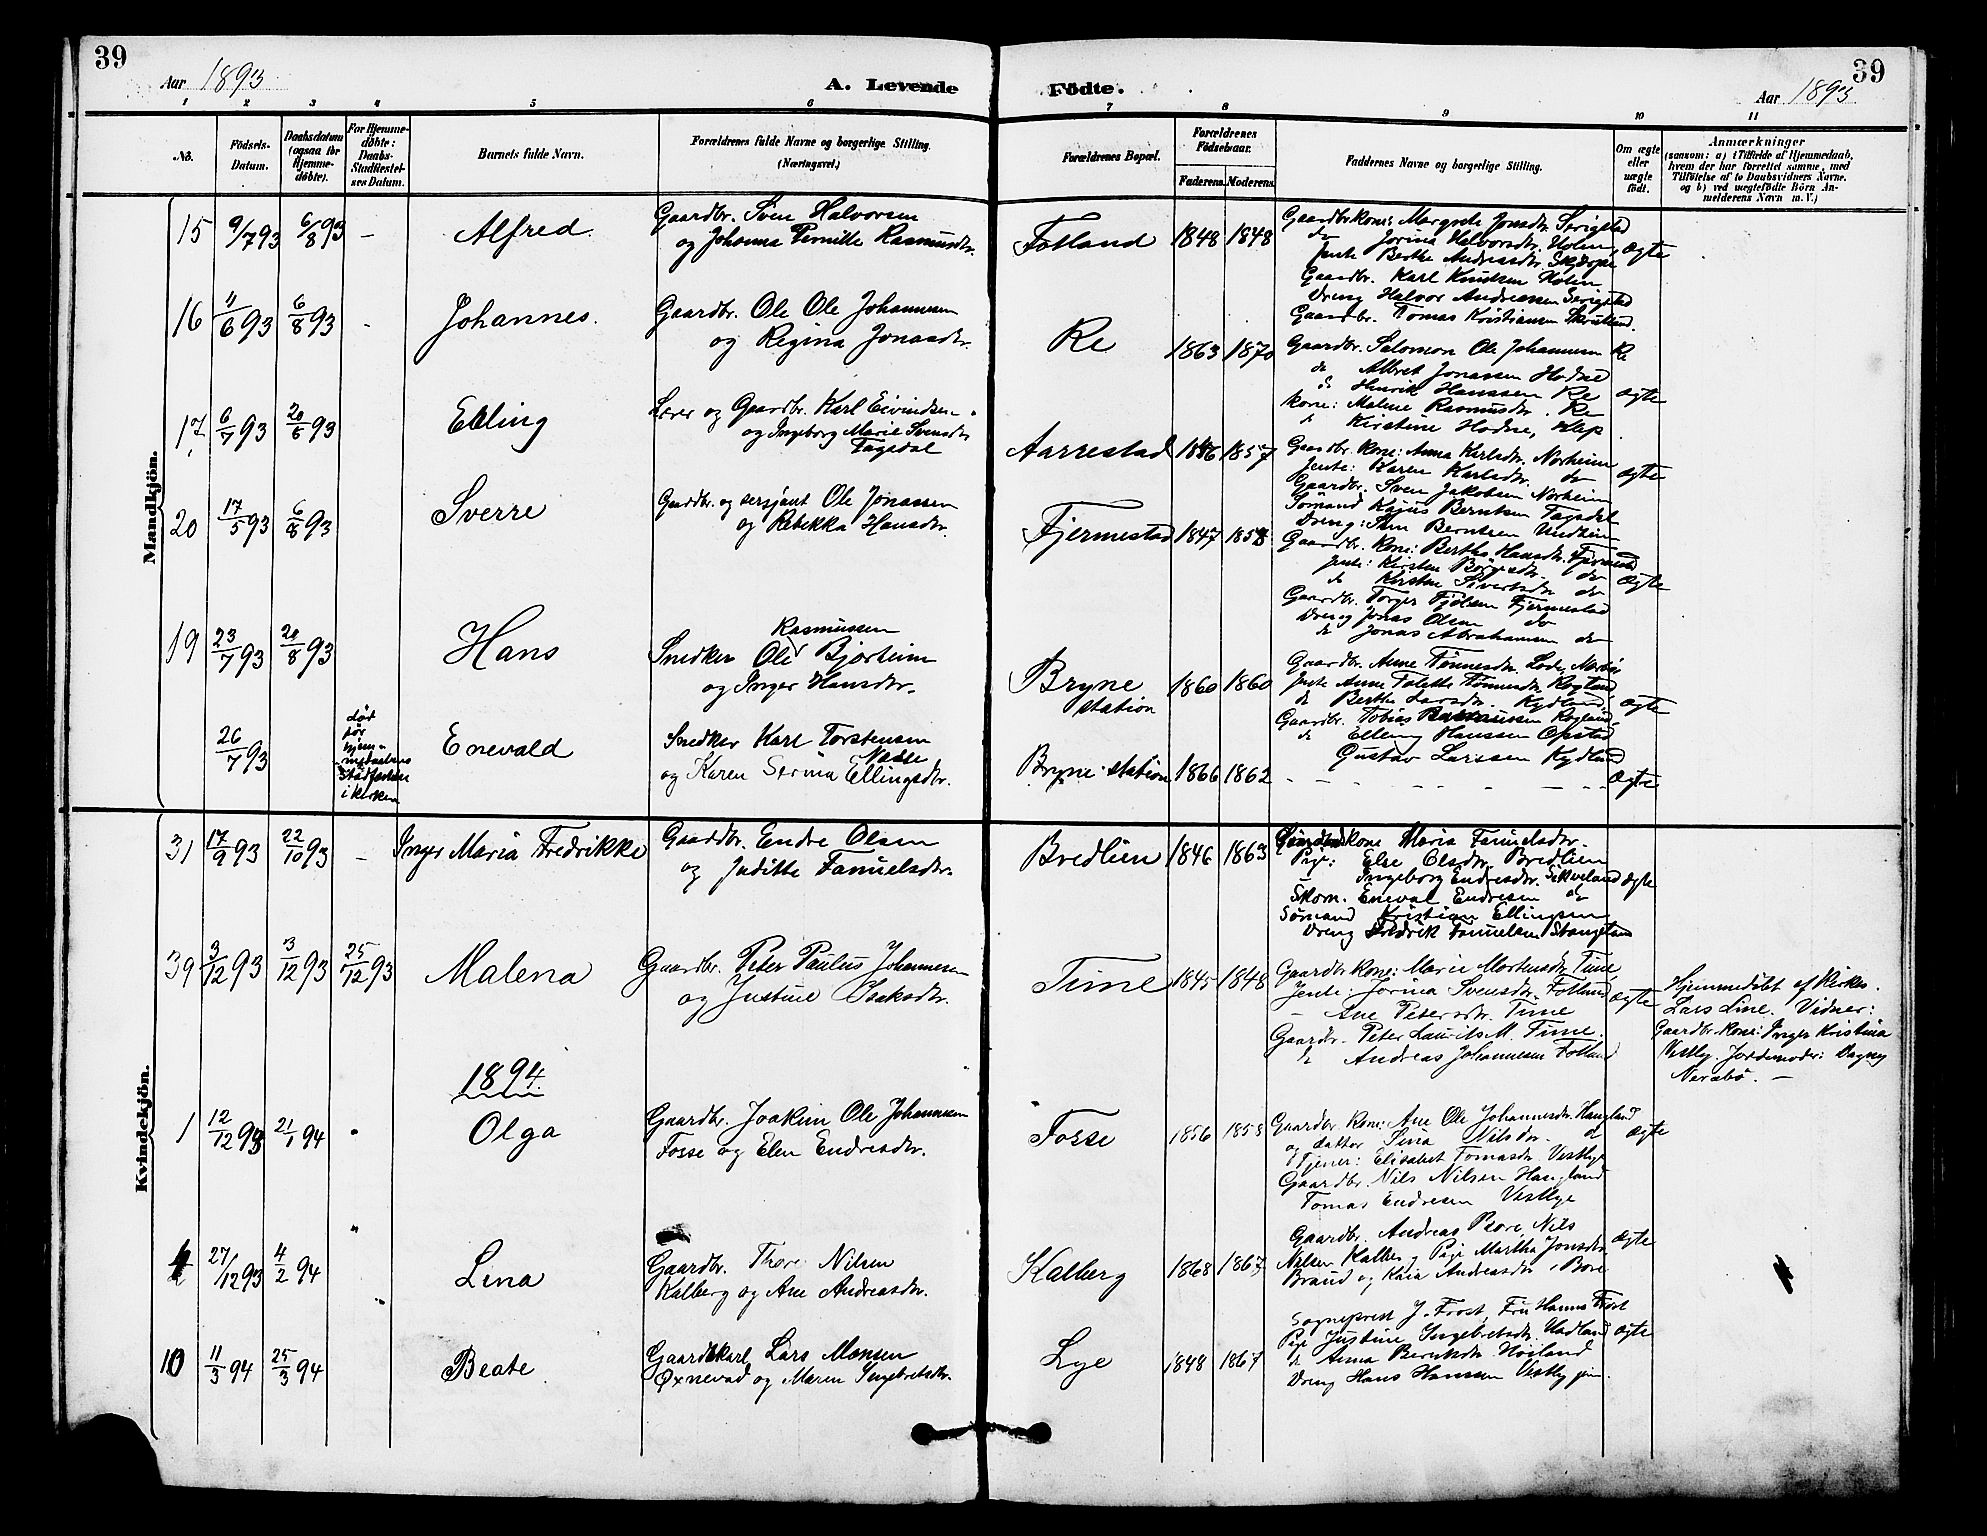 39
Aar 1893
A. Levende
Födte.
Aar 1893
39
1 2 3 4 5 6 7 8 9 10 11
No.
Födsels-
Datum.
Daabsdatum
(ogsaa for
Hjemme-
döbte).
For Hjemme-
döbte:
Daabs-
Stadfæstel-
ses Datum.
Barnets fulde Navn.
Forældrenes fulde Navne og borgerlige Stilling.
(Næringsvei.)
Forældrenes Bopæl.
Forældrenes
Födselsaar.
Faderens. Moderens.
Faddernes Navne og borgerlige Stilling.
Om ægte
eller
uægte
födt.
Anmærkninger
(saasom: a) i Tilfælde af Hjemmedaab,
hvem der har forrettet samme, med
Tilföielse af to Daabsvidners Navne,
og b) ved uægtefödte Börn An-
melderens Navn m. V.)
Mandkjön.
15 9/7 93 6/8 93 – Alfred.
Gaardbr. Sven Halvorsen
og Johanna Pernille Rasmusdtr.
Fotland 1848 1848
Gaardbr kone: Margrete Jonsdtr. Serigstad
do Jorina Halvorsdtr. Holen,
Jente Berthe Andreasdtr.
Gaardbr. Karl Knudsen Holen
Dreng Halvor Andreassen Serigstad
Gaardbr. Tomas Kristiansen
ægte
16 11/6 93 6/8 93 - Johannes.
Gaardbr. Ole Ole Johannesen
og Regina Jonasdtr.
Re 1863 1870
Gaardbr. Salomon Ole Johannesen Re
do Albret Jonassen Hodne
do Henrik Hanssen Re
Kone: Malene Rasmusdtr. Re
do Kirstine Hodne, Klep
ægte
17. 6/7 93 20/8 93 Elling
Lærer og Gaardbr. Karl Eivindsen
og Ingeborg Marie Svensdtr
Tagsdal
Aarrestad 1856 1857
Gaardbr. kone: Anna Karlsdtr. Norheim
Jente: Karen Karlsdtr. do
Gaardbr. Sven Jakobsen Norheim
Sömand Kajus Berntsen Tagsdal
Dreng: Berntsen Undheim
ægte
20 17/5 93 6/8 93 Sverre
Gaardbr. og sersjant Ole Jonassen
og Rebekka Hansdtr.
Fjermestad 1847 1858
Gaardbr. Kone: Berthe Hansdtr. Fjermestad
Jente: Kirsten Börresdtr. do
do Kirstine Sivertsdtr do
Gaardbr. Torger Fjermestad
Dreng Jonas Olsen do
do Jonas Abrahamsen do
ægte
19 23/7 93 20/8 93 Hans
Rasmussen
Snedker Ole Bjorheim
og Inger Hansdtr.
Bryne
station 1860 1860
Gaardbr. Anne Tönnesdtr. Lode, Nærbö
Jente Anne Tolette Tönnesdtr Rogland
do Berthe Larsdtr. Kydland
Gaardbr. Tobias Rasmussen Rogland
do Elling Hanssen Opstad
Gustav Larssen Kydland
ægte
26/7 93
död
för
hjem-
medaabens
Stadfæstelse
i kirken
Enevald
Snedker Karl Torstensen
og Karen Serina Ellingsdtr.
Bryne station 1866 1862 ægte
Kvindekjön.
31 17/9 93 22/10 93 – Inger Maria Fredrikke
Gaardbr. Endre Olsen
og Juditte Fanuelsdtr.
Bredlien 1846 1863
kone Maria Fanuelsdtr.
Pige: Else Olsdtr. Bredlien
Ingeborg Endresdtr.
Skom. Eneval Endresen do
Sömand Kristian Ellingsen
Dreng Fredrik Fanuelsen Stangeland
ægte
39 3/12 93 3/12 93 25/12 93 Malena
Gaardbr. Peter Paulus Johannesen
og Justine Isaksdtr.
Time 1845 1848
Gaardbr Kone: Marie Mortensdtr. Time
Jente: Jorina Svensdtr. Fotland
– Ane Petersdtr. Time
Gaardbr. Peter Laurits M. Time.
do Andreas Johannesen Fotland
ægte
Hjemmedöbt af Kirkes.
Lars Line. Vidner:
Gaardbr. Kone: Inger Kristina
Vestly. Jordemoder: Dagny
Næsbö. –
1894
1 12/12 93 21/1 94 Olga
Gaardbr. Joakim Ole Johannesen
Fosse og Elen Endresdtr.
Fosse 1856 1858
Gaardbr Kone: Ane Ole Johannesdtr. Haugland
og datter Sina Nilsdtr. do
Tjener: Elisabet Tomasdtr Vestlye
Gaardbr. Nils Nilsen Haugland
Tomas Endresen Vestlye
ægte
27/12 93 4/2 94 Lina
Gaardbr. Thore Nilsen
Kalberg og Ane Andreasdtr.
Kalberg 1868 1867
Gaardbr. Andreas Bore, Nils
Nilsen Kalberg, Pige Martha Jonsdtr
Braud og Kaia Andreasdtr, Bore
ægte
10 11/3 94 25/3 94 Beate
Gaardkarl Lars Monsen
Öxnevad og Maren Ingebretsdtr.
Lye 1848 1867
Sogneprest J. Frost, Fru Hanna Frost
Pige Justine Ingebretsdtr. Hadland
do Anna Berntsdtr Höiland
Dreng Hans Hanssen Vestly
ægte